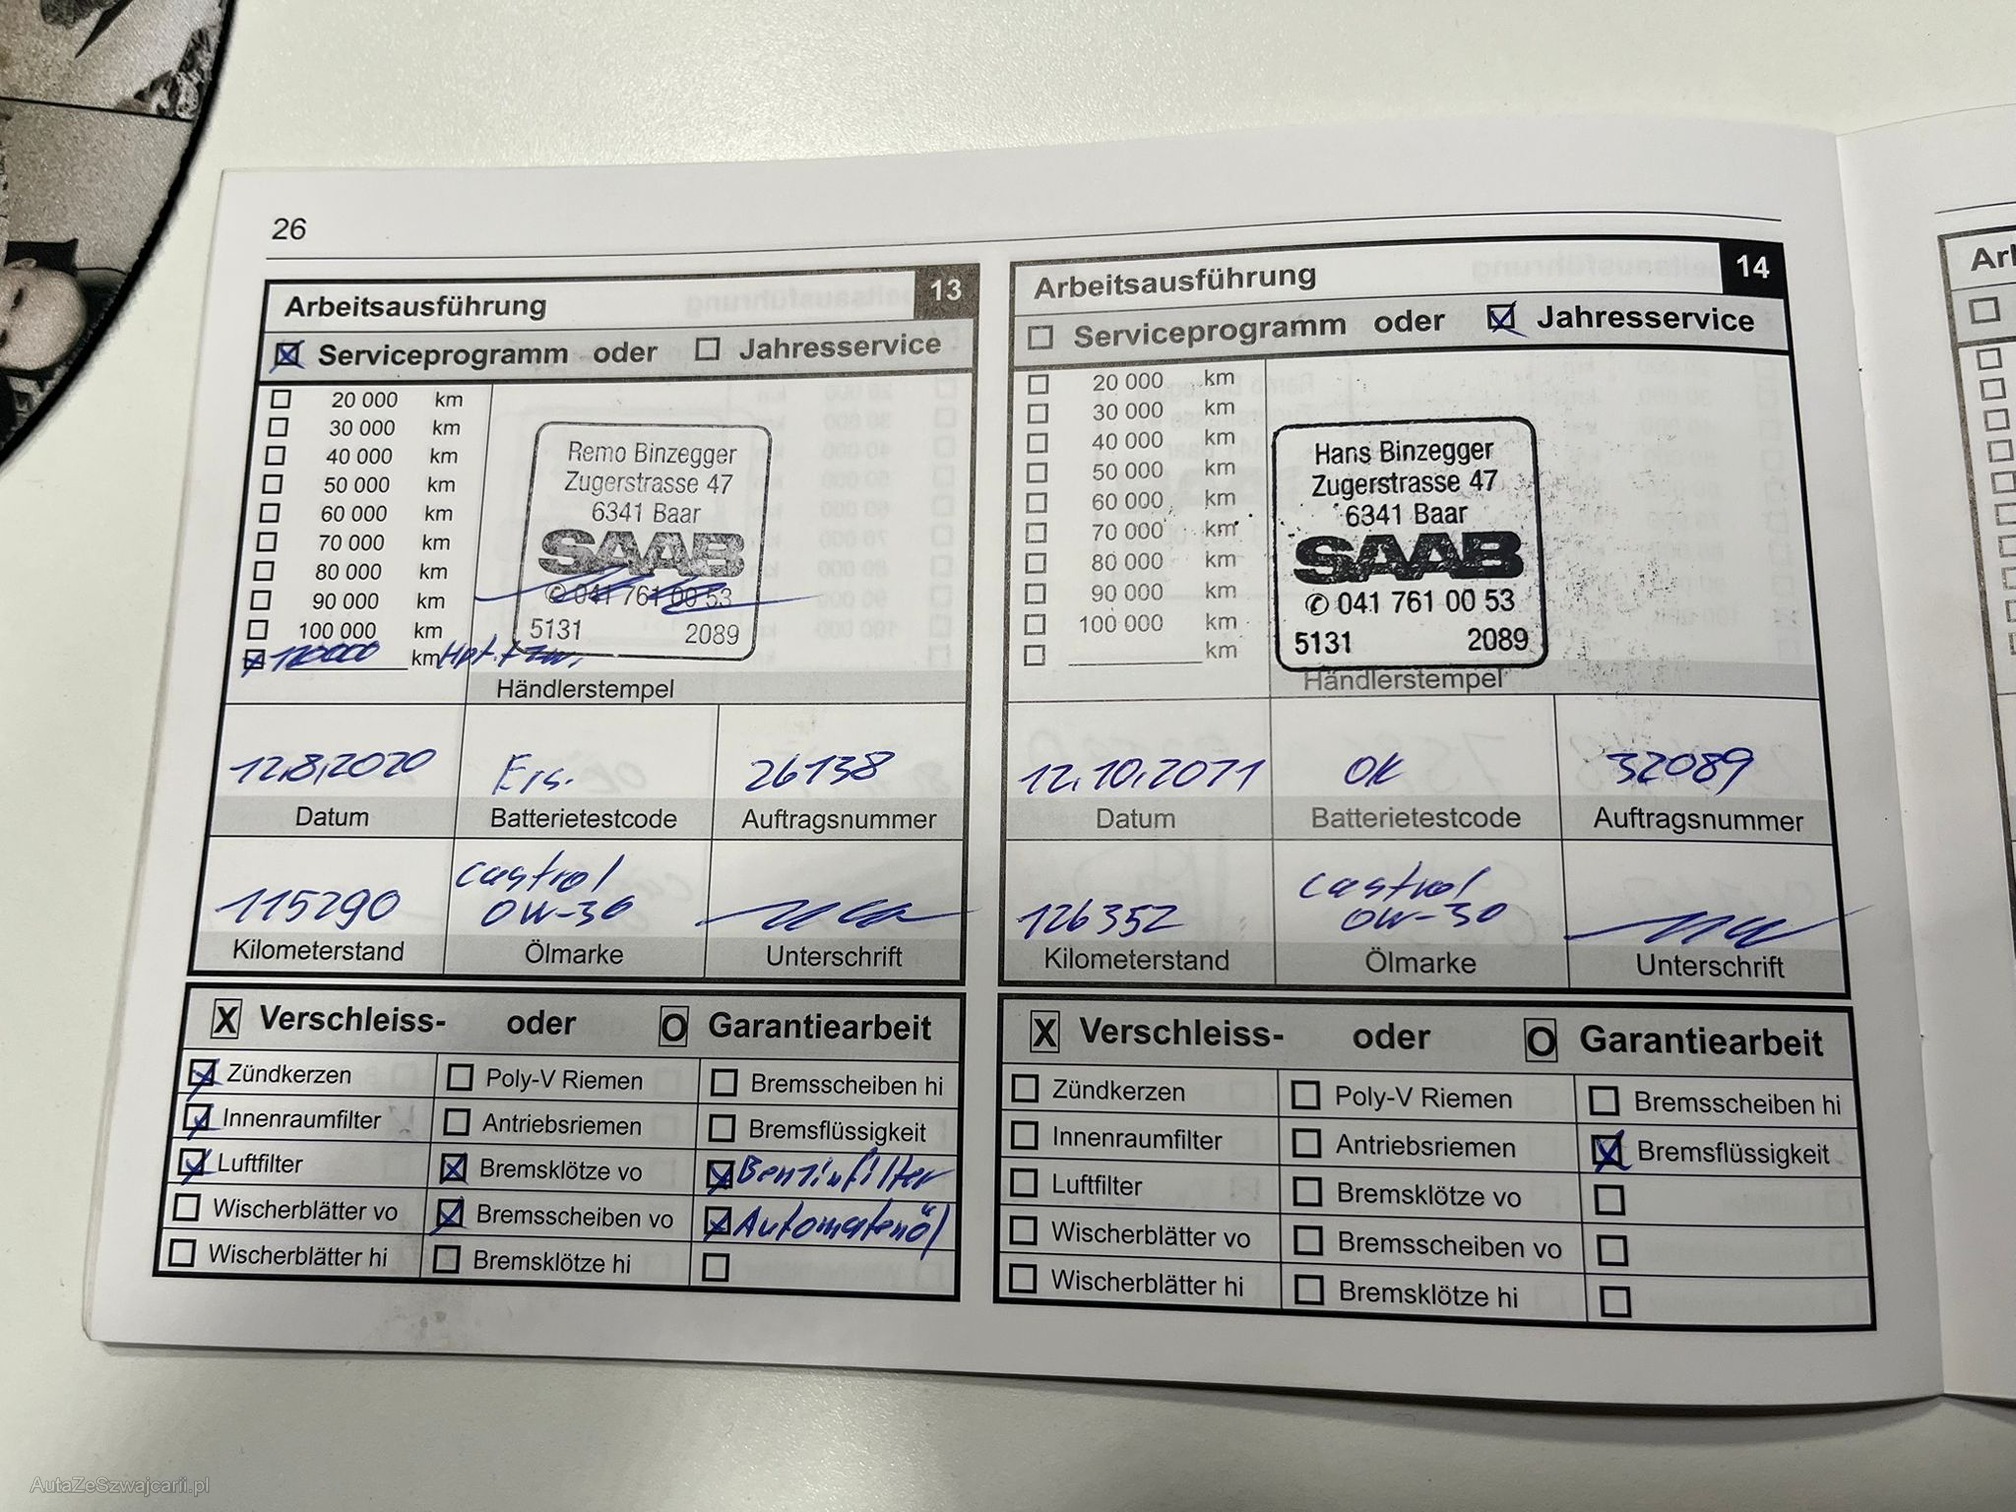 26
Arbeitsausführung 13
Serviceprogramm oder Jahresservice
20 000 km
30 000 km
40 000 km
50 000 km
60 000 km
70 000 km
80 000 km
90 000 km
100 000 km
120000 km
Remo Binzegger
Zugerstrasse 47
6341 Baar
SAAB
✆ 041 761 00 53
5131 2089
Händlerstempel
12.8.2020 Ers. 26138
Datum Batterietestcode Auftragsnummer
castrol
115290 0W-30
Kilometerstand Ölmarke Unterschrift
X Verschleiss- oder O Garantiearbeit
Zündkerzen Poly-V Riemen Bremsscheiben hi
Innenraumfilter Antriebsriemen Bremsflüssigkeit
Luftfilter Bremsklötze vo Benzinfilter
Wischerblätter vo Bremsscheiben vo Automatenöl
Wischerblätter hi Bremsklötze hi
Arbeitsausführung 14
Serviceprogramm oder Jahresservice
20 000 km
30 000 km
40 000 km
50 000 km
60 000 km
70 000 km
80 000 km
90 000 km
100 000 km
km
Hans Binzegger
Zugerstrasse 47
6341 Baar
SAAB
✆ 041 761 00 53
5131 2089
Händlerstempel
12.10.2021 OK 32089
Datum Batterietestcode Auftragsnummer
castrol
126352 0W-30
Kilometerstand Ölmarke Unterschrift
X Verschleiss- oder O Garantiearbeit
Zündkerzen Poly-V Riemen Bremsscheiben hi
Innenraumfilter Antriebsriemen Bremsflüssigkeit
Luftfilter Bremsklötze vo
Wischerblätter vo Bremsscheiben vo
Wischerblätter hi Bremsklötze hi
AutaZeSzwajcarii.pl